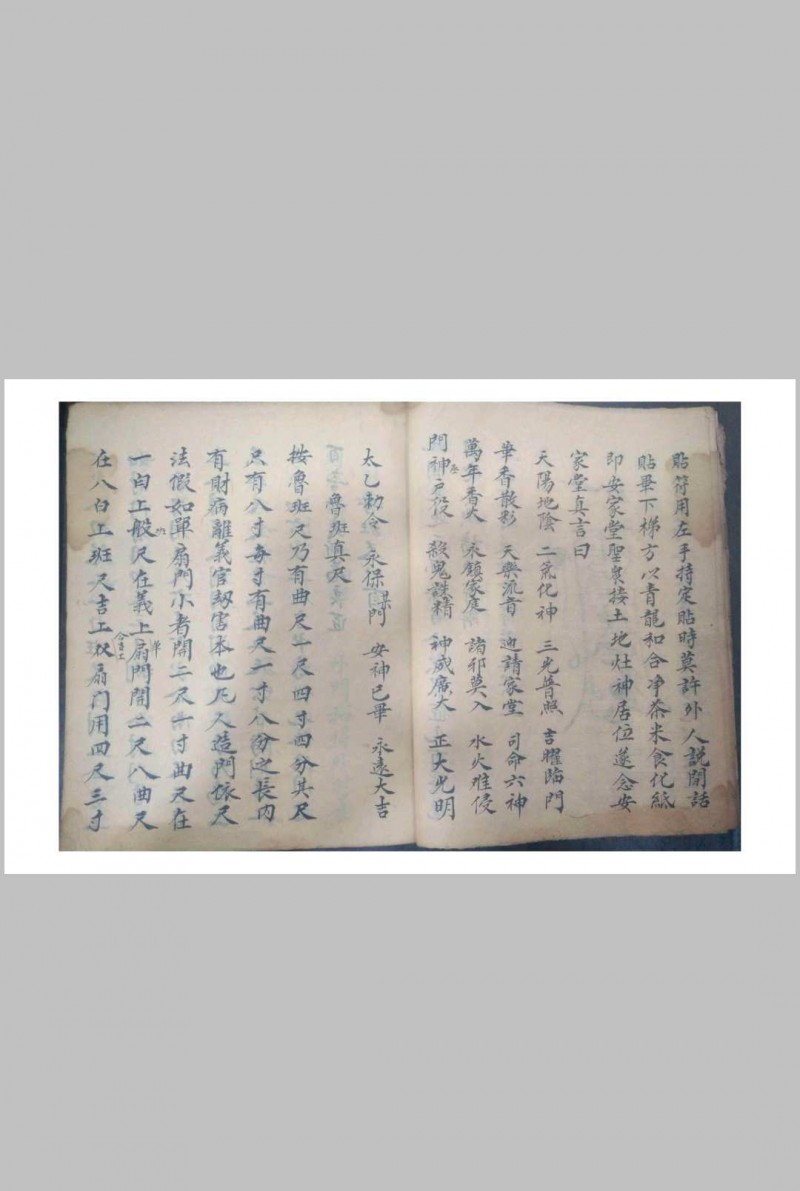 貼符用左手持定貼時莫許外人説閒話
貼畢下梯方以青龍和合净茶米食化紙
即安家堂聖衆接土地灶神居位遂念安
家堂真言曰
天陽地陰 二炁化神 三光普照 吉曜臨門
華香散彩 天樂流音 迎請家堂 司命六神
萬年香火 永鎮家庭 諸邪莫入 水火难侵
門神户役 殺鬼誅精 神威廣大 正大光明
太乙勅令 永保 門 安神已畢 永遠大吉
魯班真尺
按魯班尺乃有曲尺一尺四寸四分其尺
只有八寸每寸有曲尺一寸八分之長内
有財病離義官劫害本也凡人造門依尺
法假如單扇門小者開二尺一寸曲尺在
一白工般尺在義上扇門開二尺八曲尺
在八白工班尺吉工双扇门用四尺三寸